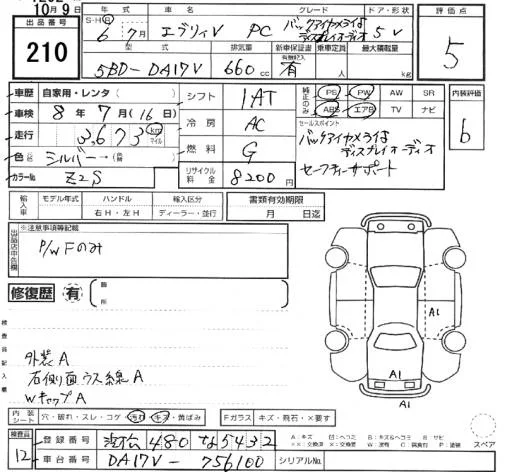 10月9日
出品番号
210
年式 車名 グレード ドア・形状 評価点
S・H・R 6年 7月 エブリイV PC バックアイカメラ付ディスプレイオーディオ 5V
5
型式 排気量 新車保証書 乗車定員 最大積載量
5BD-DA17V 660cc 有 人 kg
車歴 自家用・レンタ( ) シフト 1AT 純正のみ PS PW AW SR 内装評価
車検 8年7月(16日) 冷房 AC ABS エアB TV ナビ b
走行 3,673 km マイル 燃料 G セールスポイント
色 シルバー バックアイカメラ付
ディスプレイオーディオ
カラーNo. Z2S リサイクル料金 8200円 セーフティーサポート
輸入車 モデル年式 ハンドル 輸入区分 書類有効期限
右H・左H ディーラー・並行 月 日迄
出品店申告欄 ※注意事項等記載
P/W Fのみ
修復歴 有 箇所
検査員記入欄
外装A
右側面ウス線A
WキャプA
A1
A1
内装シート 穴・破れ・スレ・コゲ・汚れ・キズ・黄ばみ Fガラス キズ・飛石・×要す
検査員 12
登録番号 480 な5432
スペア
車台番号 DA17V-756100 シリアルNo.